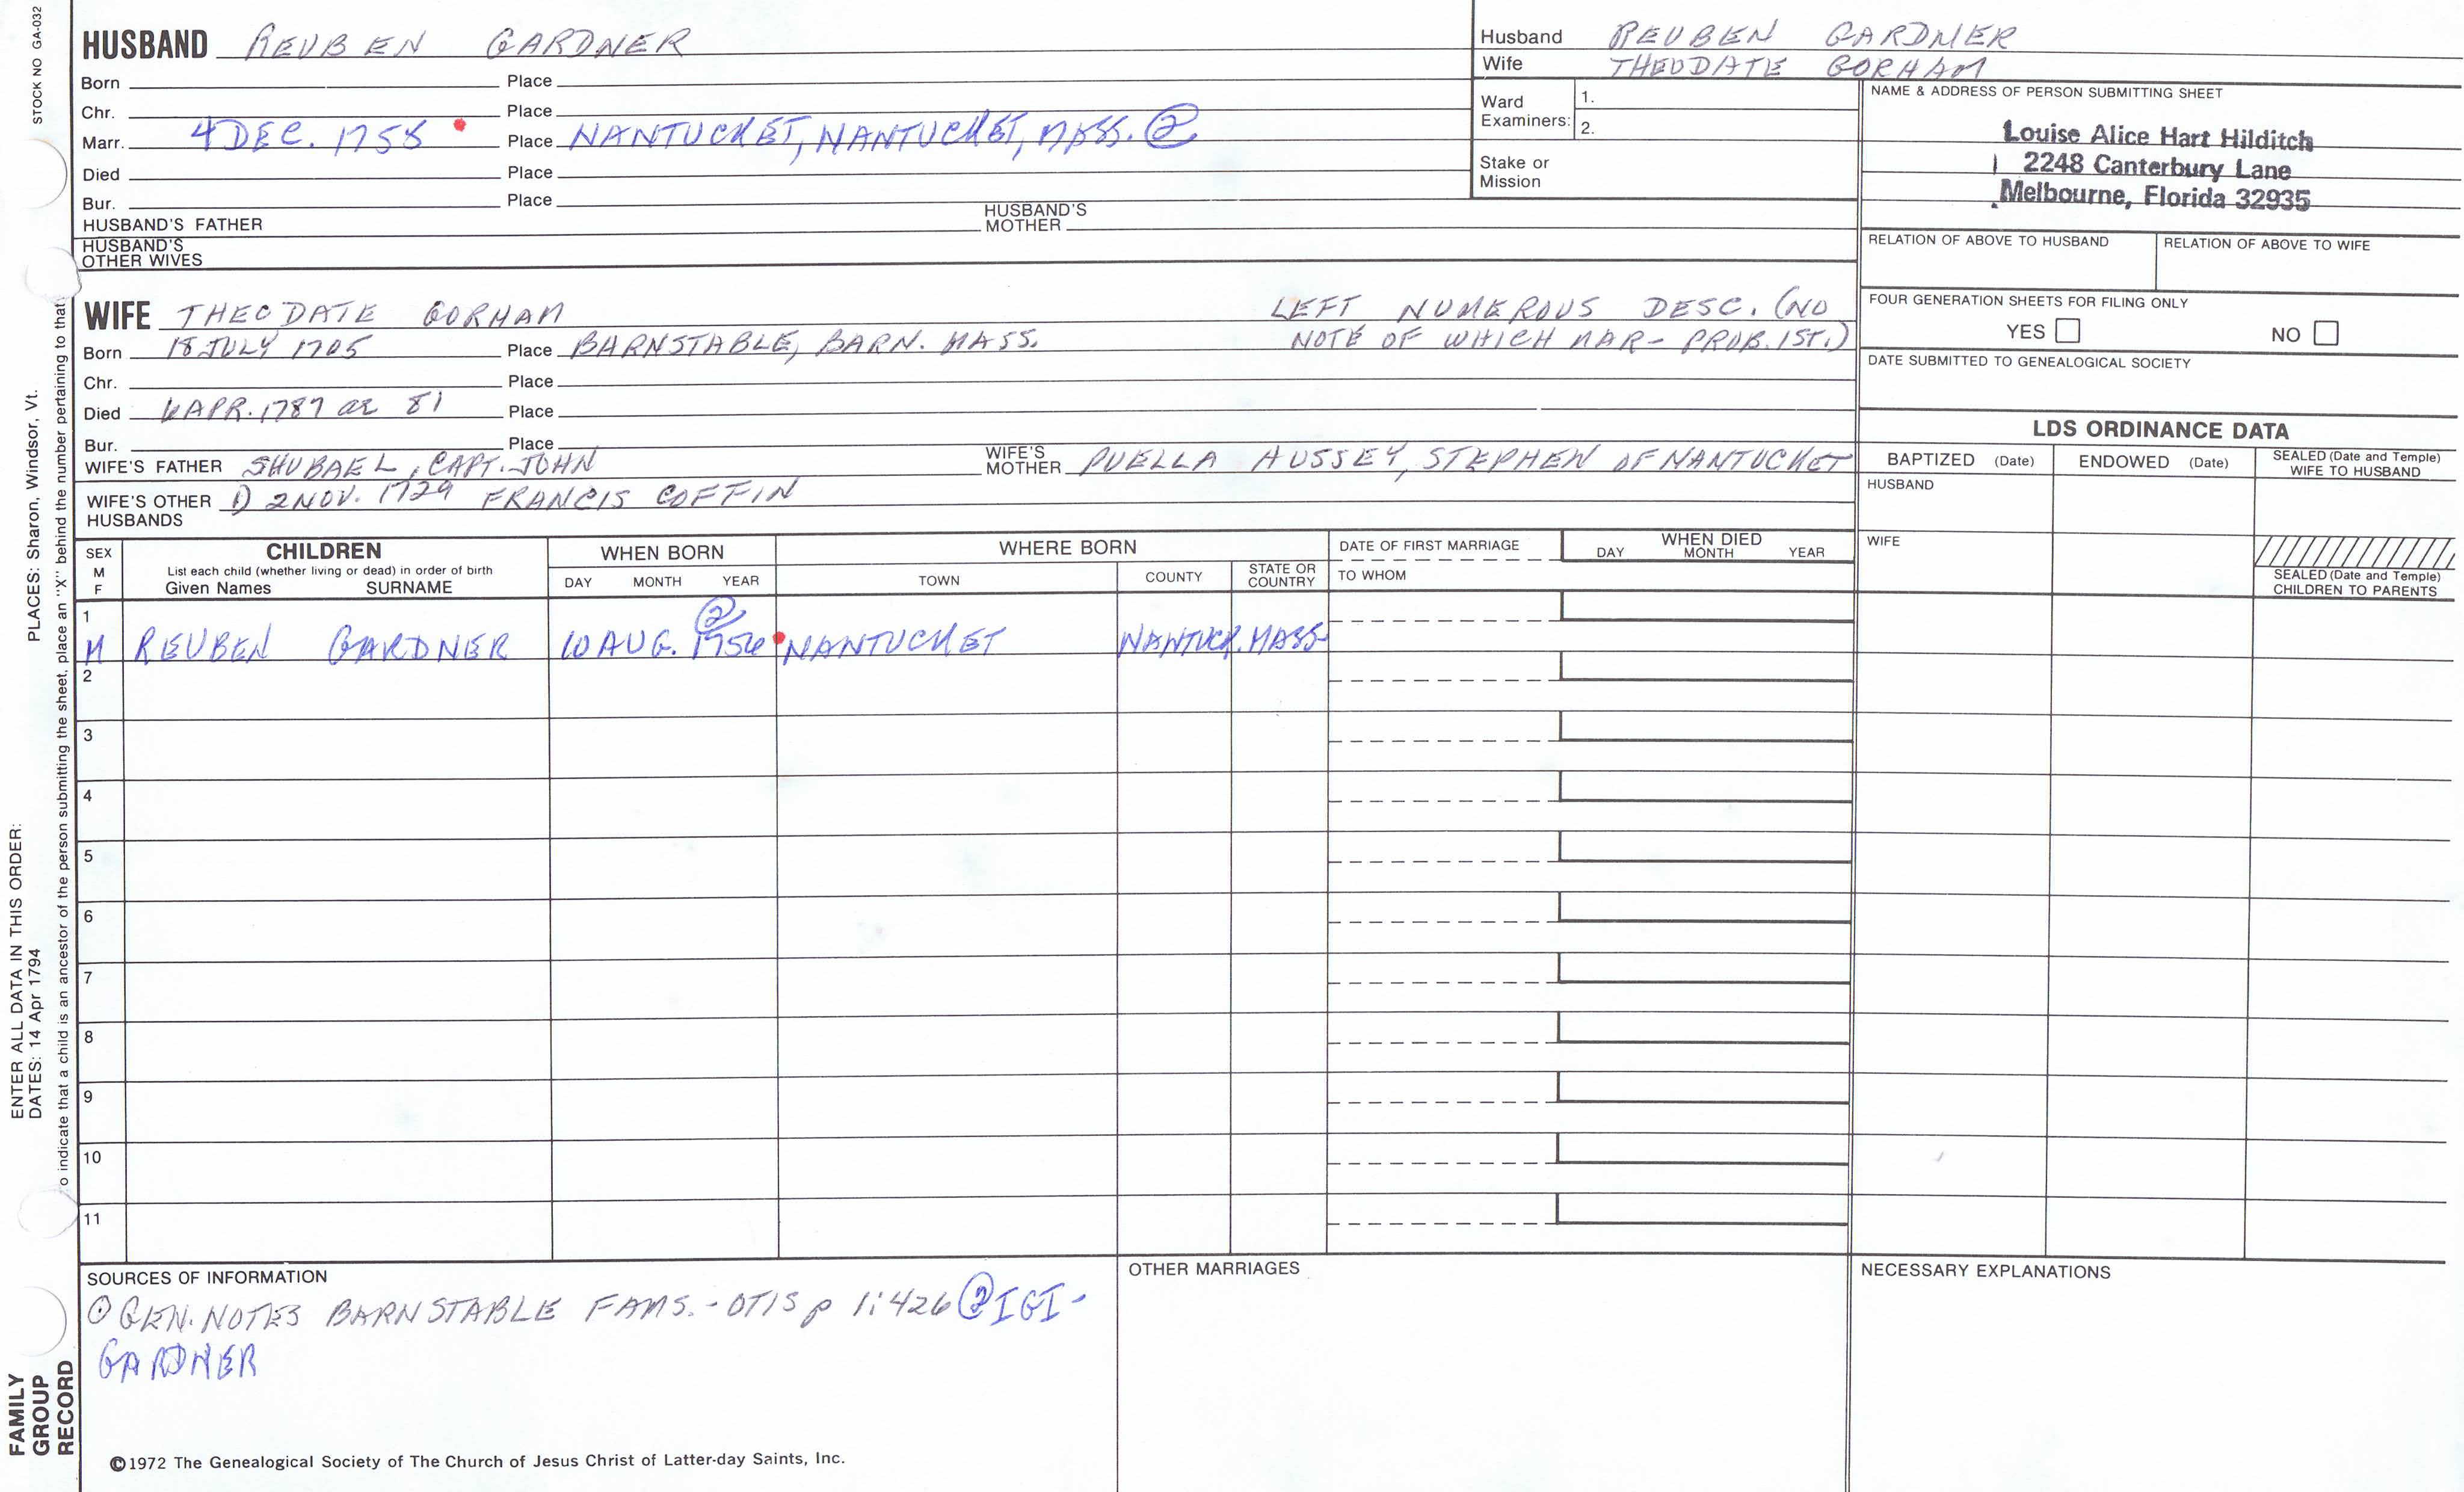 STOCK NO GA-032
HUSBAND REUBEN GARDNER
Born Place
Chr. Place
Marr. 4 DEC. 1755 Place NANTUCKET, NANTUCKET, MASS. ②
Died Place
Bur. Place
HUSBAND'S FATHER HUSBAND'S MOTHER
HUSBAND'S OTHER WIVES
Husband REUBEN GARDNER
Wife THEODATE GORHAM
Ward Examiners: 1.
2.
Stake or Mission
NAME & ADDRESS OF PERSON SUBMITTING SHEET
Louise Alice Hart Hilditch
2248 Canterbury Lane
Melbourne, Florida 32935
RELATION OF ABOVE TO HUSBAND RELATION OF ABOVE TO WIFE
FOUR GENERATION SHEETS FOR FILING ONLY
YES NO
DATE SUBMITTED TO GENEALOGICAL SOCIETY
WIFE THEODATE GORHAM LEFT NUMEROUS DESC. (NO
Born 18 JULY 1705 Place BARNSTABLE, BARN. MASS. NOTE OF WHICH MAR- PROB. 1ST.)
Chr. Place
Died 6 APR. 1787 ae 81 Place
Bur. Place
WIFE'S FATHER SHUBAEL, CAPT. JOHN WIFE'S MOTHER PUELLA HUSSEY, STEPHEN OF NANTUCKET
WIFE'S OTHER HUSBANDS 1) 2 NOV. 1729 FRANCIS COFFIN
LDS ORDINANCE DATA
BAPTIZED (Date) ENDOWED (Date) SEALED (Date and Temple) WIFE TO HUSBAND
HUSBAND
WIFE
SEALED (Date and Temple) CHILDREN TO PARENTS
SEX M F
CHILDREN
List each child (whether living or dead) in order of birth
Given Names SURNAME
WHEN BORN
DAY MONTH YEAR
WHERE BORN
TOWN COUNTY STATE OR COUNTRY
DATE OF FIRST MARRIAGE
TO WHOM
WHEN DIED
DAY MONTH YEAR
1
②
M REUBEN GARDNER 10 AUG. 1756 NANTUCKET NANTUCK. MASS.
2
3
4
5
6
7
8
9
10
11
SOURCES OF INFORMATION
① GEN. NOTES BARNSTABLE FAMS. - OTIS p 1:426 ② IGI -
GARDNER
OTHER MARRIAGES
NECESSARY EXPLANATIONS
©1972 The Genealogical Society of The Church of Jesus Christ of Latter-day Saints, Inc.
FAMILY
GROUP
RECORD
ENTER ALL DATA IN THIS ORDER:
DATES: 14 Apr 1794
PLACES: Sharon, Windsor, Vt.
o indicate that a child is an ancestor of the person submitting the sheet, place an "X" behind the number pertaining to that